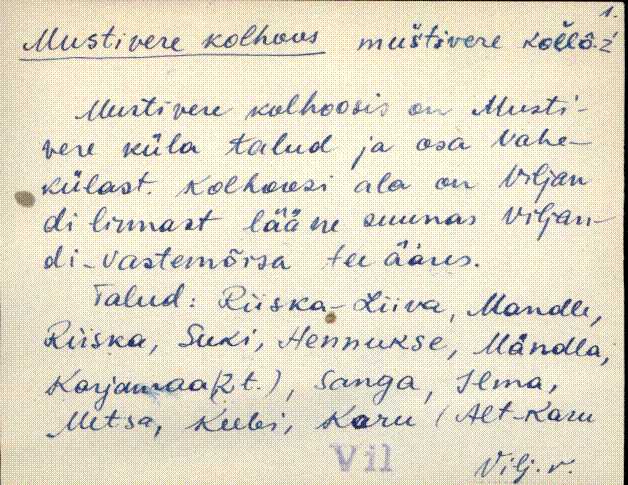 1.
Mustivere kolhoos muštivere
Mustivere kolhoosis on Musti-
vere küla talud ja osa Vahe-
külast. Kolhoosi ala on Viljan
di linnast lääne suunas Viljan-
di-Vastemõisa tee ääres.
Talud: Riiska-Liiva, Mandle,
Riiska, Suki, Hennukse, Mändla,
Karjamaa (2 t.), Sanga, Ilma,
Metsa, Keebi, Karu (Alt-Karu
Vil
Vilj. v.